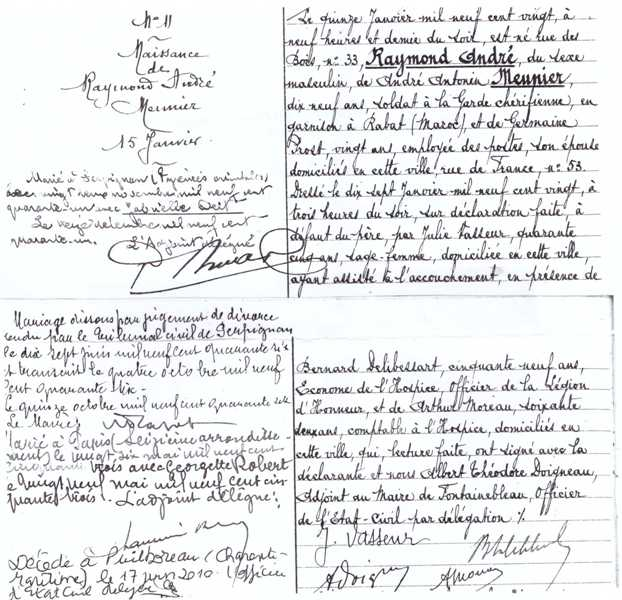 N° 11
Naissance
de
Raymond André
Meunier
15 Janvier
Marié à Perpignan (Pyrénées orientales)
le vingt neuf novembre mil neuf cent
quarante un avec Gabrielle
Le seize décembre mil neuf cent
quarante un.
L'Adjoint délégué
Le quinze Janvier mil neuf cent vingt, à
neuf heures et demie du soir, est né rue des
Bois, n° 33, Raymond André, du sexe
masculin, de André Antonin Meunier,
dix neuf ans, soldat à la Garde chérifienne, en
garnison à Rabat (Maroc), et de Germaine
Prost, vingt ans, employée des postes, son épouse
domiciliés en cette ville, rue de France, n° 53.
Dressé le dix sept Janvier mil neuf cent vingt, à
trois heures du soir, sur déclaration faite, à
défaut du père, par Julie Vasseur, quarante
cinq ans, sage-femme, domiciliée en cette ville,
ayant assisté à l'accouchement, en présence de
Mariage dissous par jugement de divorce
rendu par le Tribunal civil de Perpignan
le dix sept juin mil neuf cent quarante six
et transcrit le quatre octobre mil neuf
cent quarante six.
Le quinze octobre mil neuf cent quarante
Le Maire,
Marié à Paris (Seizième arrondisse-
ment) le vingt six mai mil neuf cent
cinquante trois avec Georgette Robert
Le vingt neuf mai mil neuf cent cin
quante trois. L'adjoint délégué:
Décédé à Puilboreau (Charente-
Maritime) le 17 juin 2010. L'officier
d'Etat Civil délégué
Bernard Delibessart, cinquante neuf ans,
Econome de l'Hospice, Officier de la Légion
d'Honneur, et de Arthur Moreau, soixante
deux ans, comptable à l'Hospice, domiciliés en
cette ville, qui, lecture faite, ont signé avec la
déclarante et nous Albert Théodore Doigneau,
Adjoint au Maire de Fontainebleau, Officier
de l'Etat-Civil par délégation ./.
J. Vasseur
ADoigneau
AMoreau